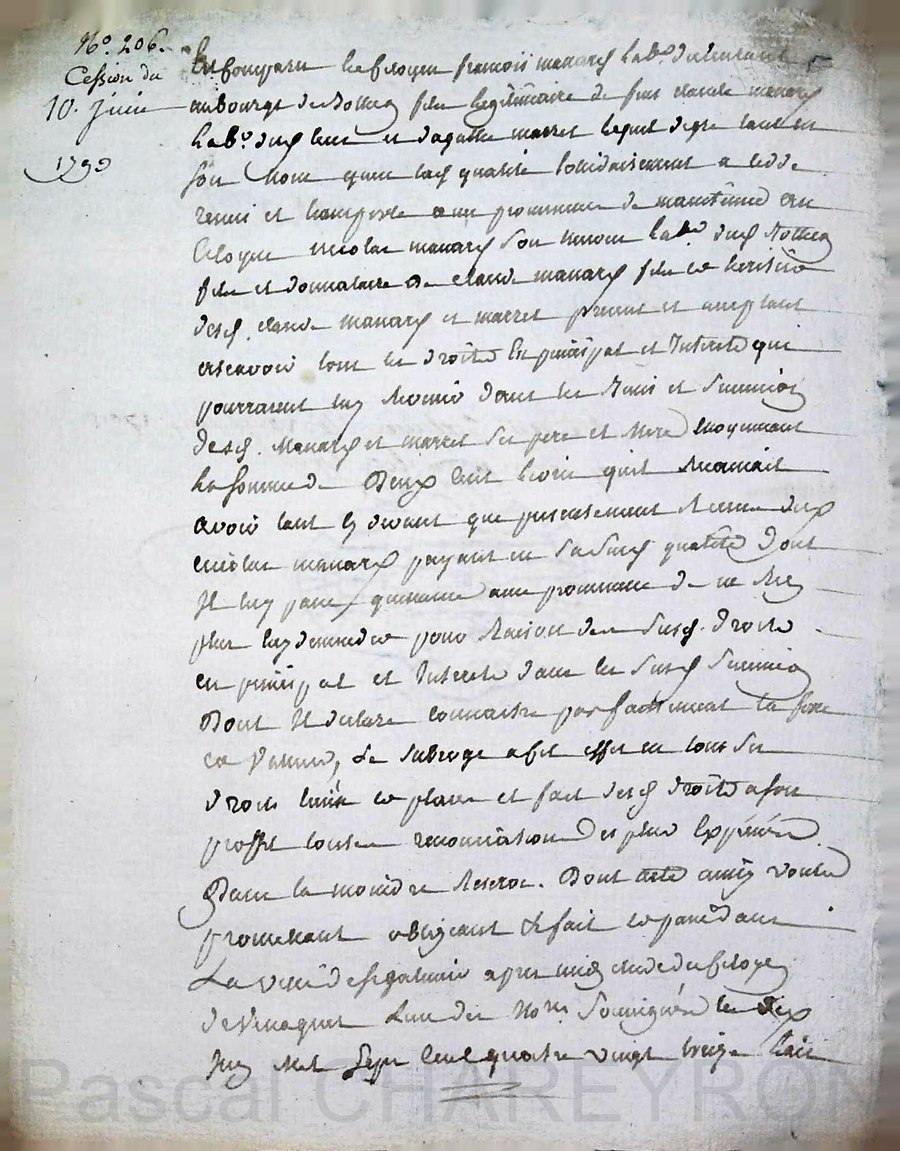 N°. 206.
Cession du
10. Juin
1793
Est Comparu le Citoyen françois manary hab.t
au bourg de fils légitimaire de feus claude manary
hab.t dud. lieu et d'agathe marret lequel de gré tant en
son nom quen lad. qualité solidairement a cédé
remis et transporté avec promesse de maintenue au
Citoyen nicolas manary son neveu hab.t dud.
fils et donnataire de claude manary fils et héritier
desd. claude manary et marret présent et acceptant
asscavoir tous les droits en principal et Interets qui
pourraient luy Revenir dans les Biens et Succession
desd. Manary et marret ses pere et Mere moyennant
la somme de Deux cent livres quil Reconnait
avoir tant cy devant que presentement Receue dud.
nicolas manary payant en sa susd. qualité Dont
Il luy passe quittance avec promesse de ne Rien
plus luy demander pour Raison des susd. droits
en principal et Interets dans les susd. Succession
Dont Il declare connaitre parfaitement la force
et valeur, Le subroge a cet effet en tous ses
droits lieu et place et fait desd. droits a son
proffit toutes renonciations les plus Expresses
Sans la moindre Reserve. Dont acte ainsy voulu
promettant obligeant &. fait et passé dans
La ville de apres midy étude du Citoyen
l'un des No.res Soussignés le dix
Juin Mil Sept Cent quatre vingt treize L'an
Pascal CHAREYRON